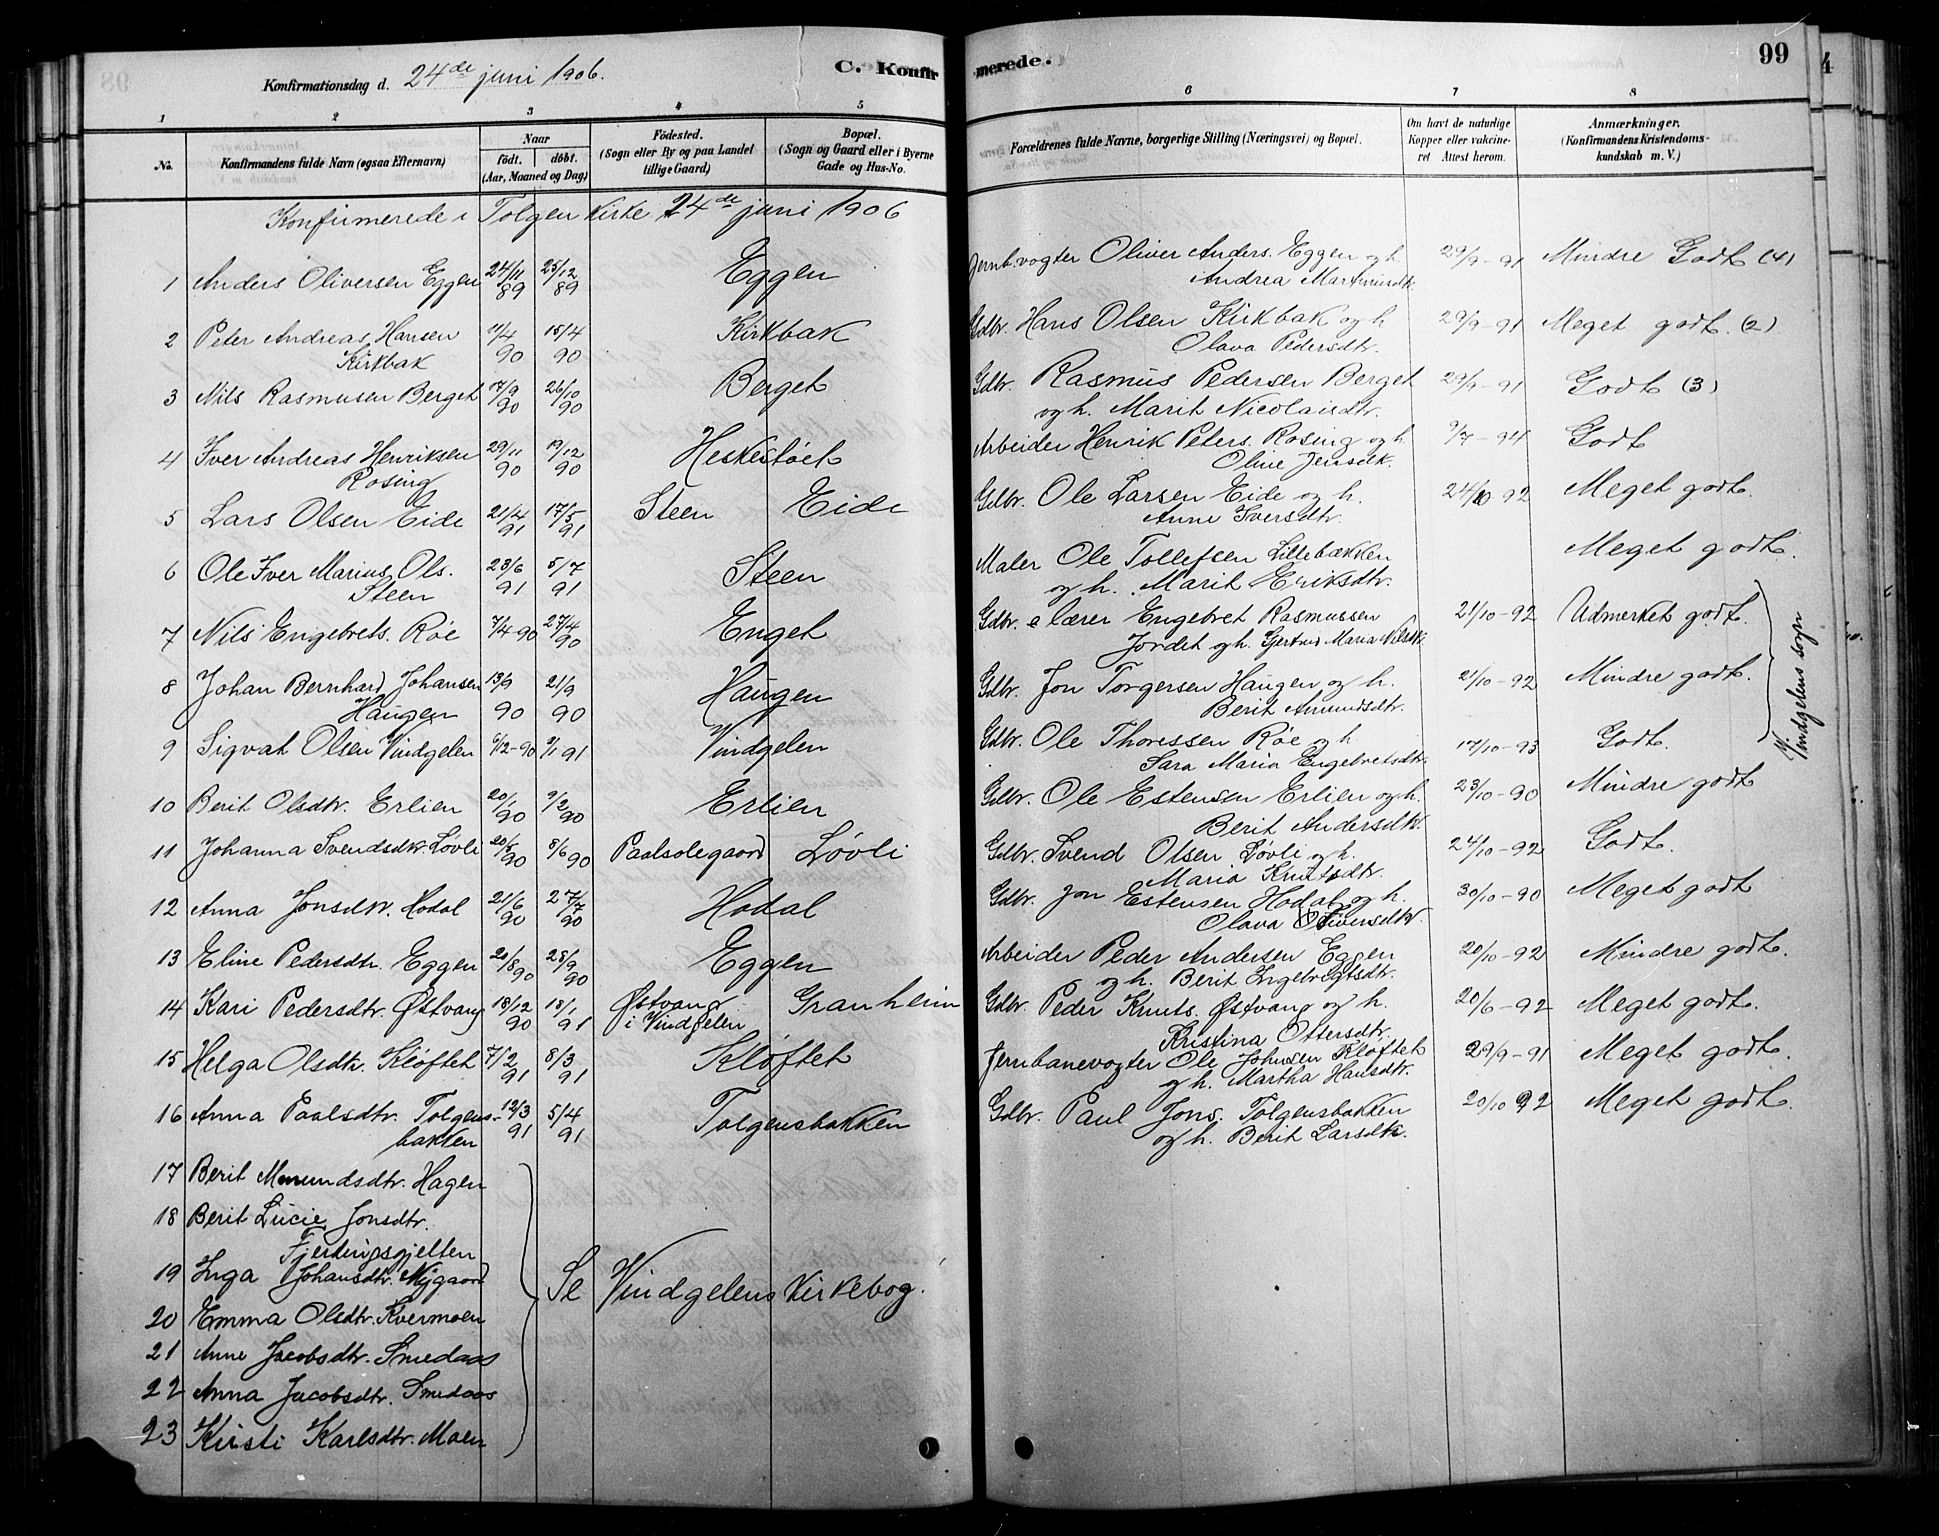 Konfirmationsdag d. 24de juni 1906.
C. Konfirmerede.
99
1 2 3 4 5 6 7 8
No.
Konfirmandens fulde Navn (ogsaa Efternavn)
Naar
födt. döbt.
(Aar, Maaned og Dag)
Födested.
(Sogn eller By og paa Landet
tillige Gaard)
Bopæl.
(Sogn og Gaard eller i Byerne
Gade og Hus-No.
Forældrenes fulde Navne, borgerlige Stilling (Næringsvei) og Bopæl.
Om havt de naturlige
Kopper eller vakcineret
Attest herom.
Anmærkninger.
(Konfirmandens Kristendoms-
kundskab m. V.)
Konfirmerede i Tolgen kirke 24de juni 1906
1 Anders Oliversen Eggen 24/11 89 25/12 89 Eggen Jernb.vogter Oliver Anders. Eggen og h. 29/9-91 Mindre Godt (4)
Andrea Martinusdtr.
2 Peter Andreas Hansen 11/4 90 15/4 90 Kirkbak Gdbr. Hans Olsen Kirkbak og h. 29/9-91 Meget godt. (2)
Kirkbak Olava Pedersdtr.
3 Nils Rasmusen Berget 17/9 90 26/10 90 Berget Gdbr. Rasmus Pedersen Berget 29/9-91 Godt (3)
og h. Marit Nicolaisdtr.
4 Iver Andreas Henriksen 29/11 90 19/12 90 Heskestöet Arbeider Henrik Peters. Rosing og h. 9/7-94 Godt
Rosing Oline Jensdtr.
5 Lars Olsen Eide 21/4 91 17/5 91 Steen Eide Gdbr. Ole Larsen Eide og h. 24/10 92 Meget godt.
Anne Iversdtr.
6 Ole Iver Marius Ols. 23/6 91 5/7 91 Steen Maler Ole Tollefsen Lillebækken Meget godt.
Steen og h. Marit Eriksdtr.
7 Nils Engebrets. Röe 7/4-90 27/4 90 Enget Gdbr. e lærer Engebret Rasmussen 21/10-92 Udmerket godt.
Jordet og h. Gertrud Maria Nilsdtr.
8 Johan Bernhard Johansen 13/9 90 21/9 90 Haugen Gdbr. Jon Torgersen Haugen og h. 21/10-92 Mindre godt.
Haugen Berit Amundsdtr.
9 Sigvat Olsen Vindgelen 6/12-90 9/1 91 Vindgelen Gdbr. Ole Thoressen Röe og h. 17/10-93 Godt.
Sara Maria Engebretsdtr.
Vindgelens sogn
10 Berit Olsdtr. Erlien 20/1 90 9/2 90 Erlien Gdbr. Ole Estensen Erlien og h. 23/10-90 Mindre godt
Berit Andersdtr.
11 Johanna Svendsdtr. Lövli 20/5 90 8/6 90 Paalsolegaard Lövli Gdbr. Svend Olsen Lövli og h. 24/10-92 Godt.
Maria Knutsdtr.
12 Anna Jonsdtr. Hodal 21/6 90 27/7 90 Hodal Gdbr. Jon Estensen Hodal og h. 30/10-90 Meget godt
Olava Oliversdtr.
13 Eline Pedersdtr. Eggen 21/8 90 28/9 90 Eggen Arbeider Peder Andersen Eggen 20/10-92 Mindre godt.
og h. Berit Ingebrigtsdtr.
14 Kari Pedersdtr. Östvang 18/12 90 18/1 91 Östvang Granheim Gdbr. Peder Knuts. Östvang og h. 20/6-92 Meget godt.
i Vindgelen Kristina Ottersdtr.
15 Helga Olsdtr. Klöftet 7/2 91 8/3 91 Klöftet Jernbanevogter Ole Johnsen Klöftet 29/9-91 Meget godt.
og h. Martha Hansdtr.
16 Anna Paalsdtr. Tolgens- 12/3 91 5/4 91 Tolgensbakken Gdbr. Paul Jons. Tolgensbakken 20/10 92 Meget godt.
bakken og h. Berit Larsdtr.
17 Berit Amundsdtr. Hagen
18 Berit Lucie Jonsdtr.
Fjerdingsgjelten
19 Inga Johansdtr. Nygaard Se Vindgelens Kirkebog.
20 Emma Olsdtr. Kvermoen
21 Anne Jacobsdtr. Smedaas
22 Anna Jacobsdtr. Smedaas
23 Kirsti Karlsdtr. Moen